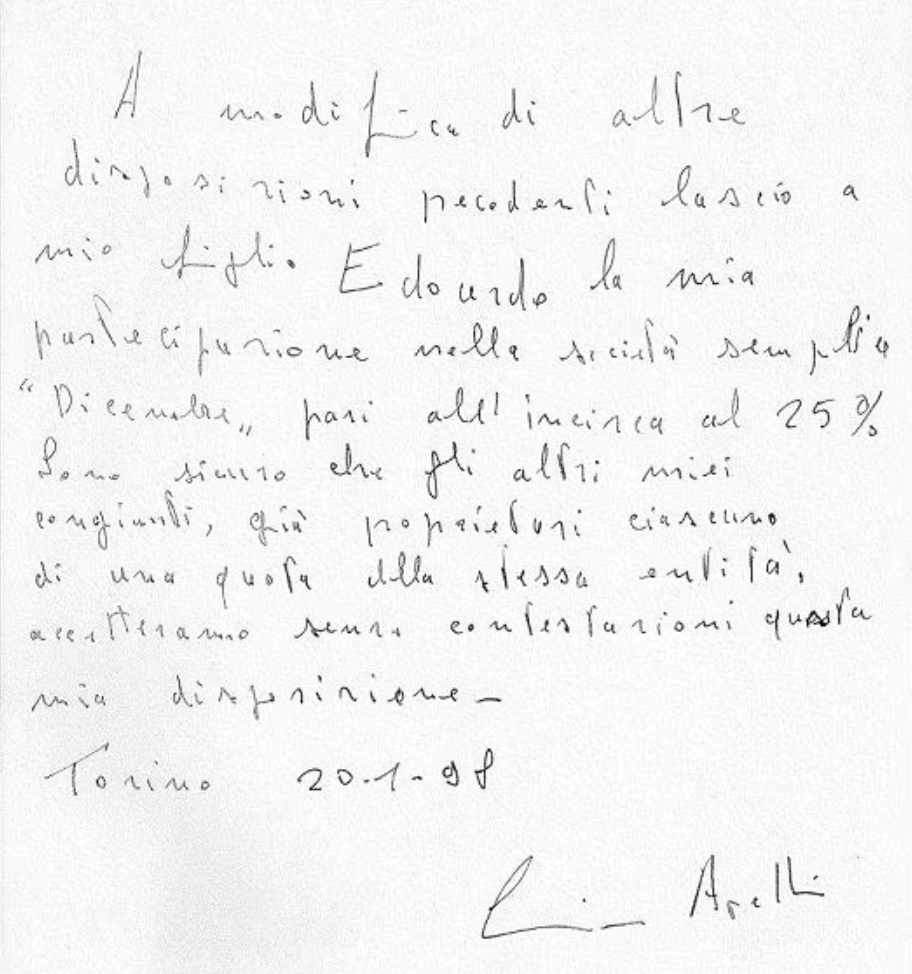 A modifica di altre
disposizioni pecedenti lascio a
mio figlio Edoardo la mia
partecipazione nella società semplice
“Dicembre„ pari all'incirca al 25%
Sono sicuro che gli altri miei
congiunti, già propietari ciascuno
di una quota della stessa entità,
accetteranno senza contestazioni questa
mia disposizione_
Torino 20-1-98